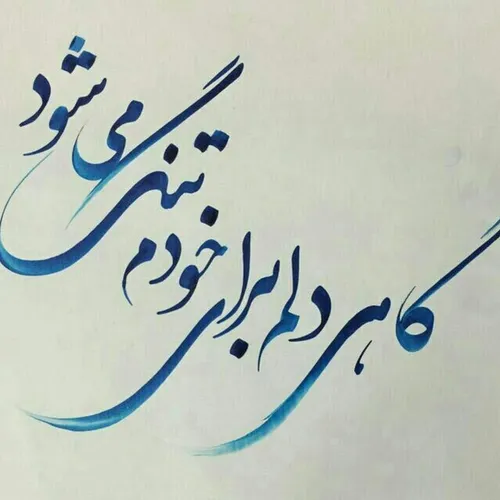 گاهی دلم برای خودم تنگ می شود